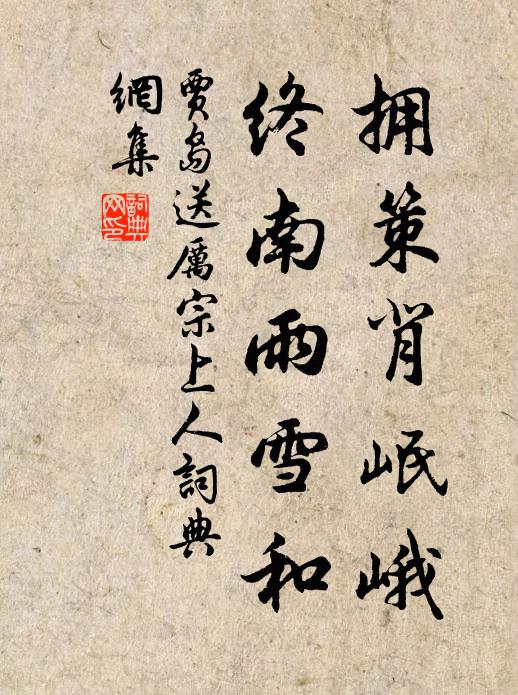 拥策背岷峨
终南雨雪和
賈島送厲宗上人詞典
網集
詞典網印